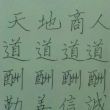 天道酬勤
地道酬善
商道酬信
人道酬